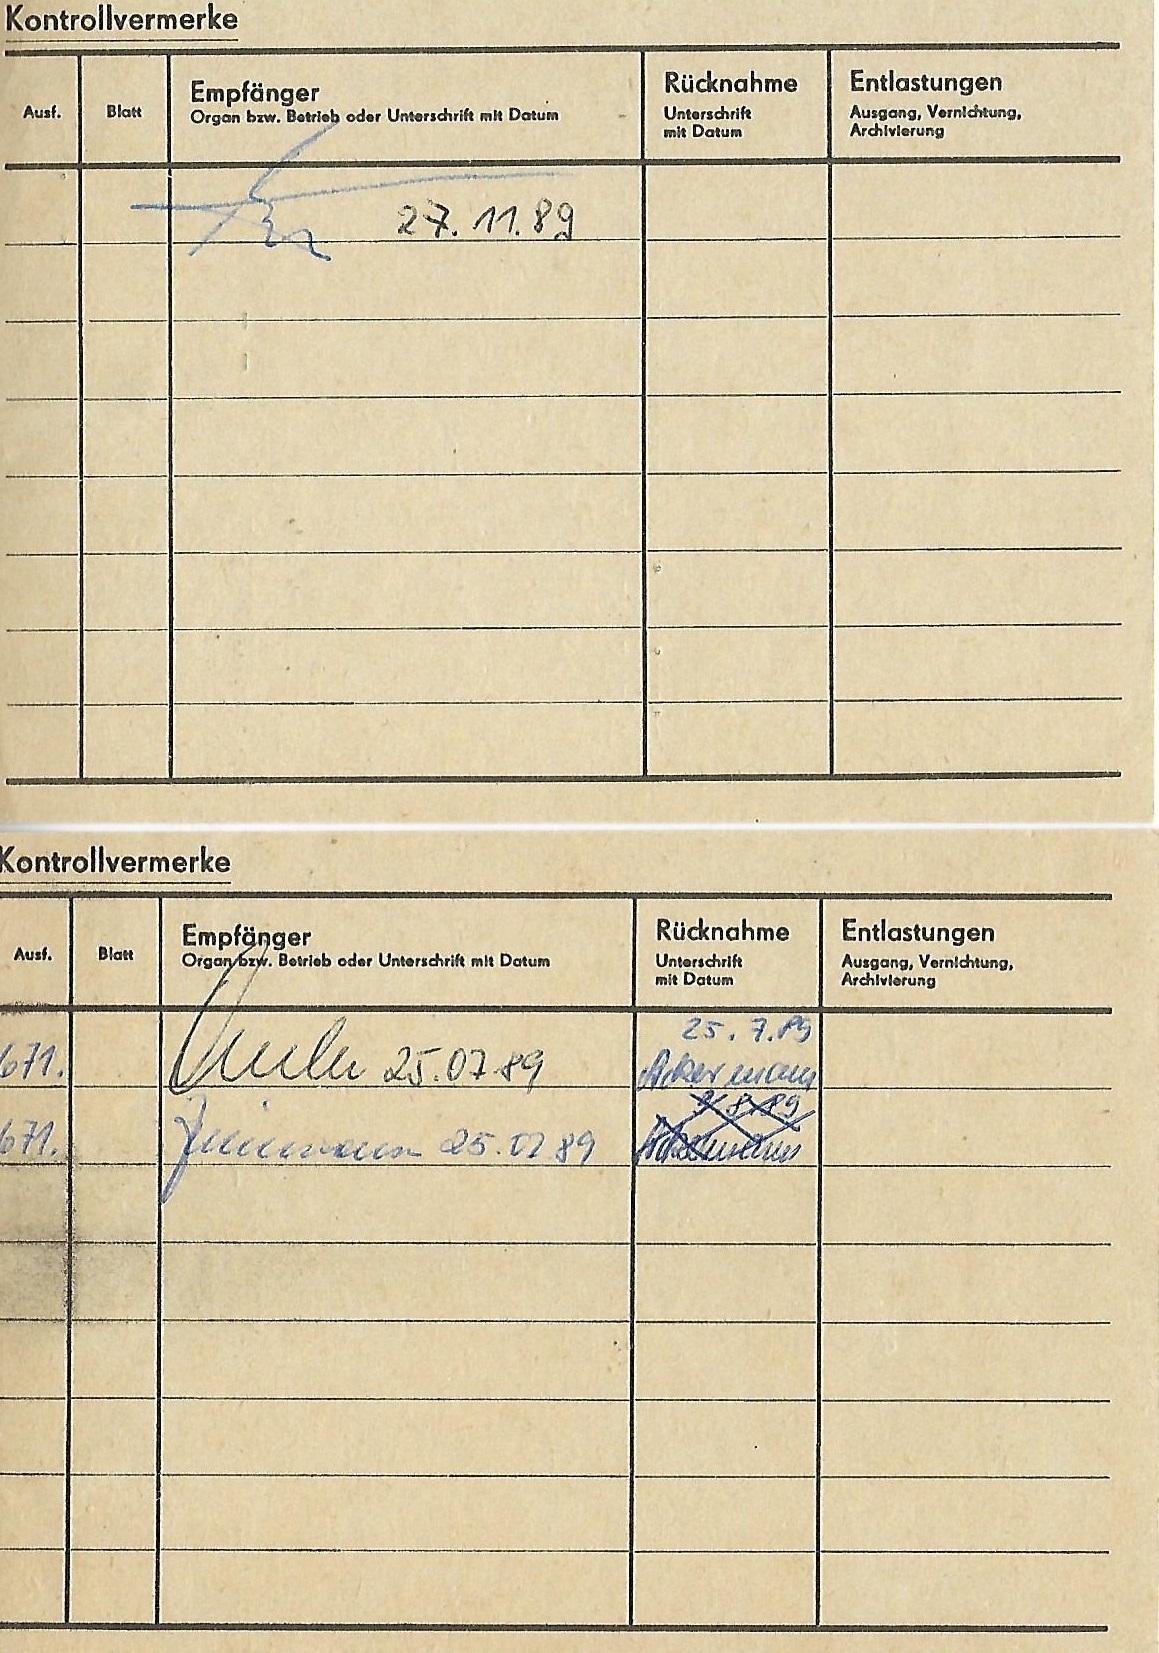 Kontrollvermerke
Ausf. Blatt Empfänger Rücknahme Entlastungen
Organ bzw. Betrieb oder Unterschrift mit Datum Unterschrift Ausgang, Vernichtung,
mit Datum Archivierung
27.11.89
Kontrollvermerke
Ausf. Blatt Empfänger Rücknahme Entlastungen
Organ bzw. Betrieb oder Unterschrift mit Datum Unterschrift Ausgang, Vernichtung,
mit Datum Archivierung
25.7.89
671. 25.07.89 Ackermann
8.89
671. 25.07.89 Ackermann